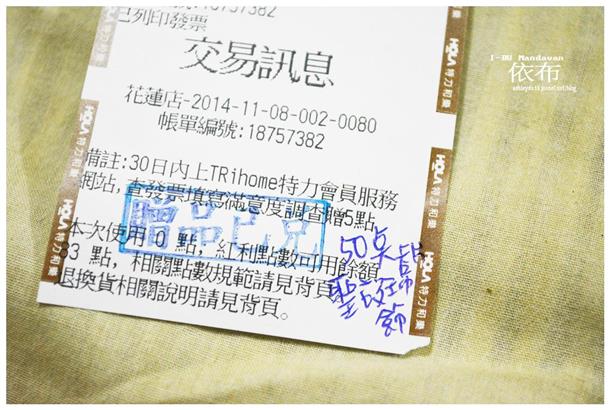 18757382
已列印發票
交易訊息
花蓮店-2014-11-08-002-0080
帳單編號:18757382
備註:30日內上TRihome特力會員服務
網站,查發票填寫滿意度調查贈5點
贈品已兌
本次使用 0 點, 紅利點數可用餘額
83 點, 相關點數規範請見背頁
退換貨相關說明請見背頁。
50點
聖誕
飾
HOLA 特力和樂
HOLA 特力和樂
HOLA 特力和樂
HOLA 特力和樂
HOLA 特力和樂
I-BU Mandavan
依布